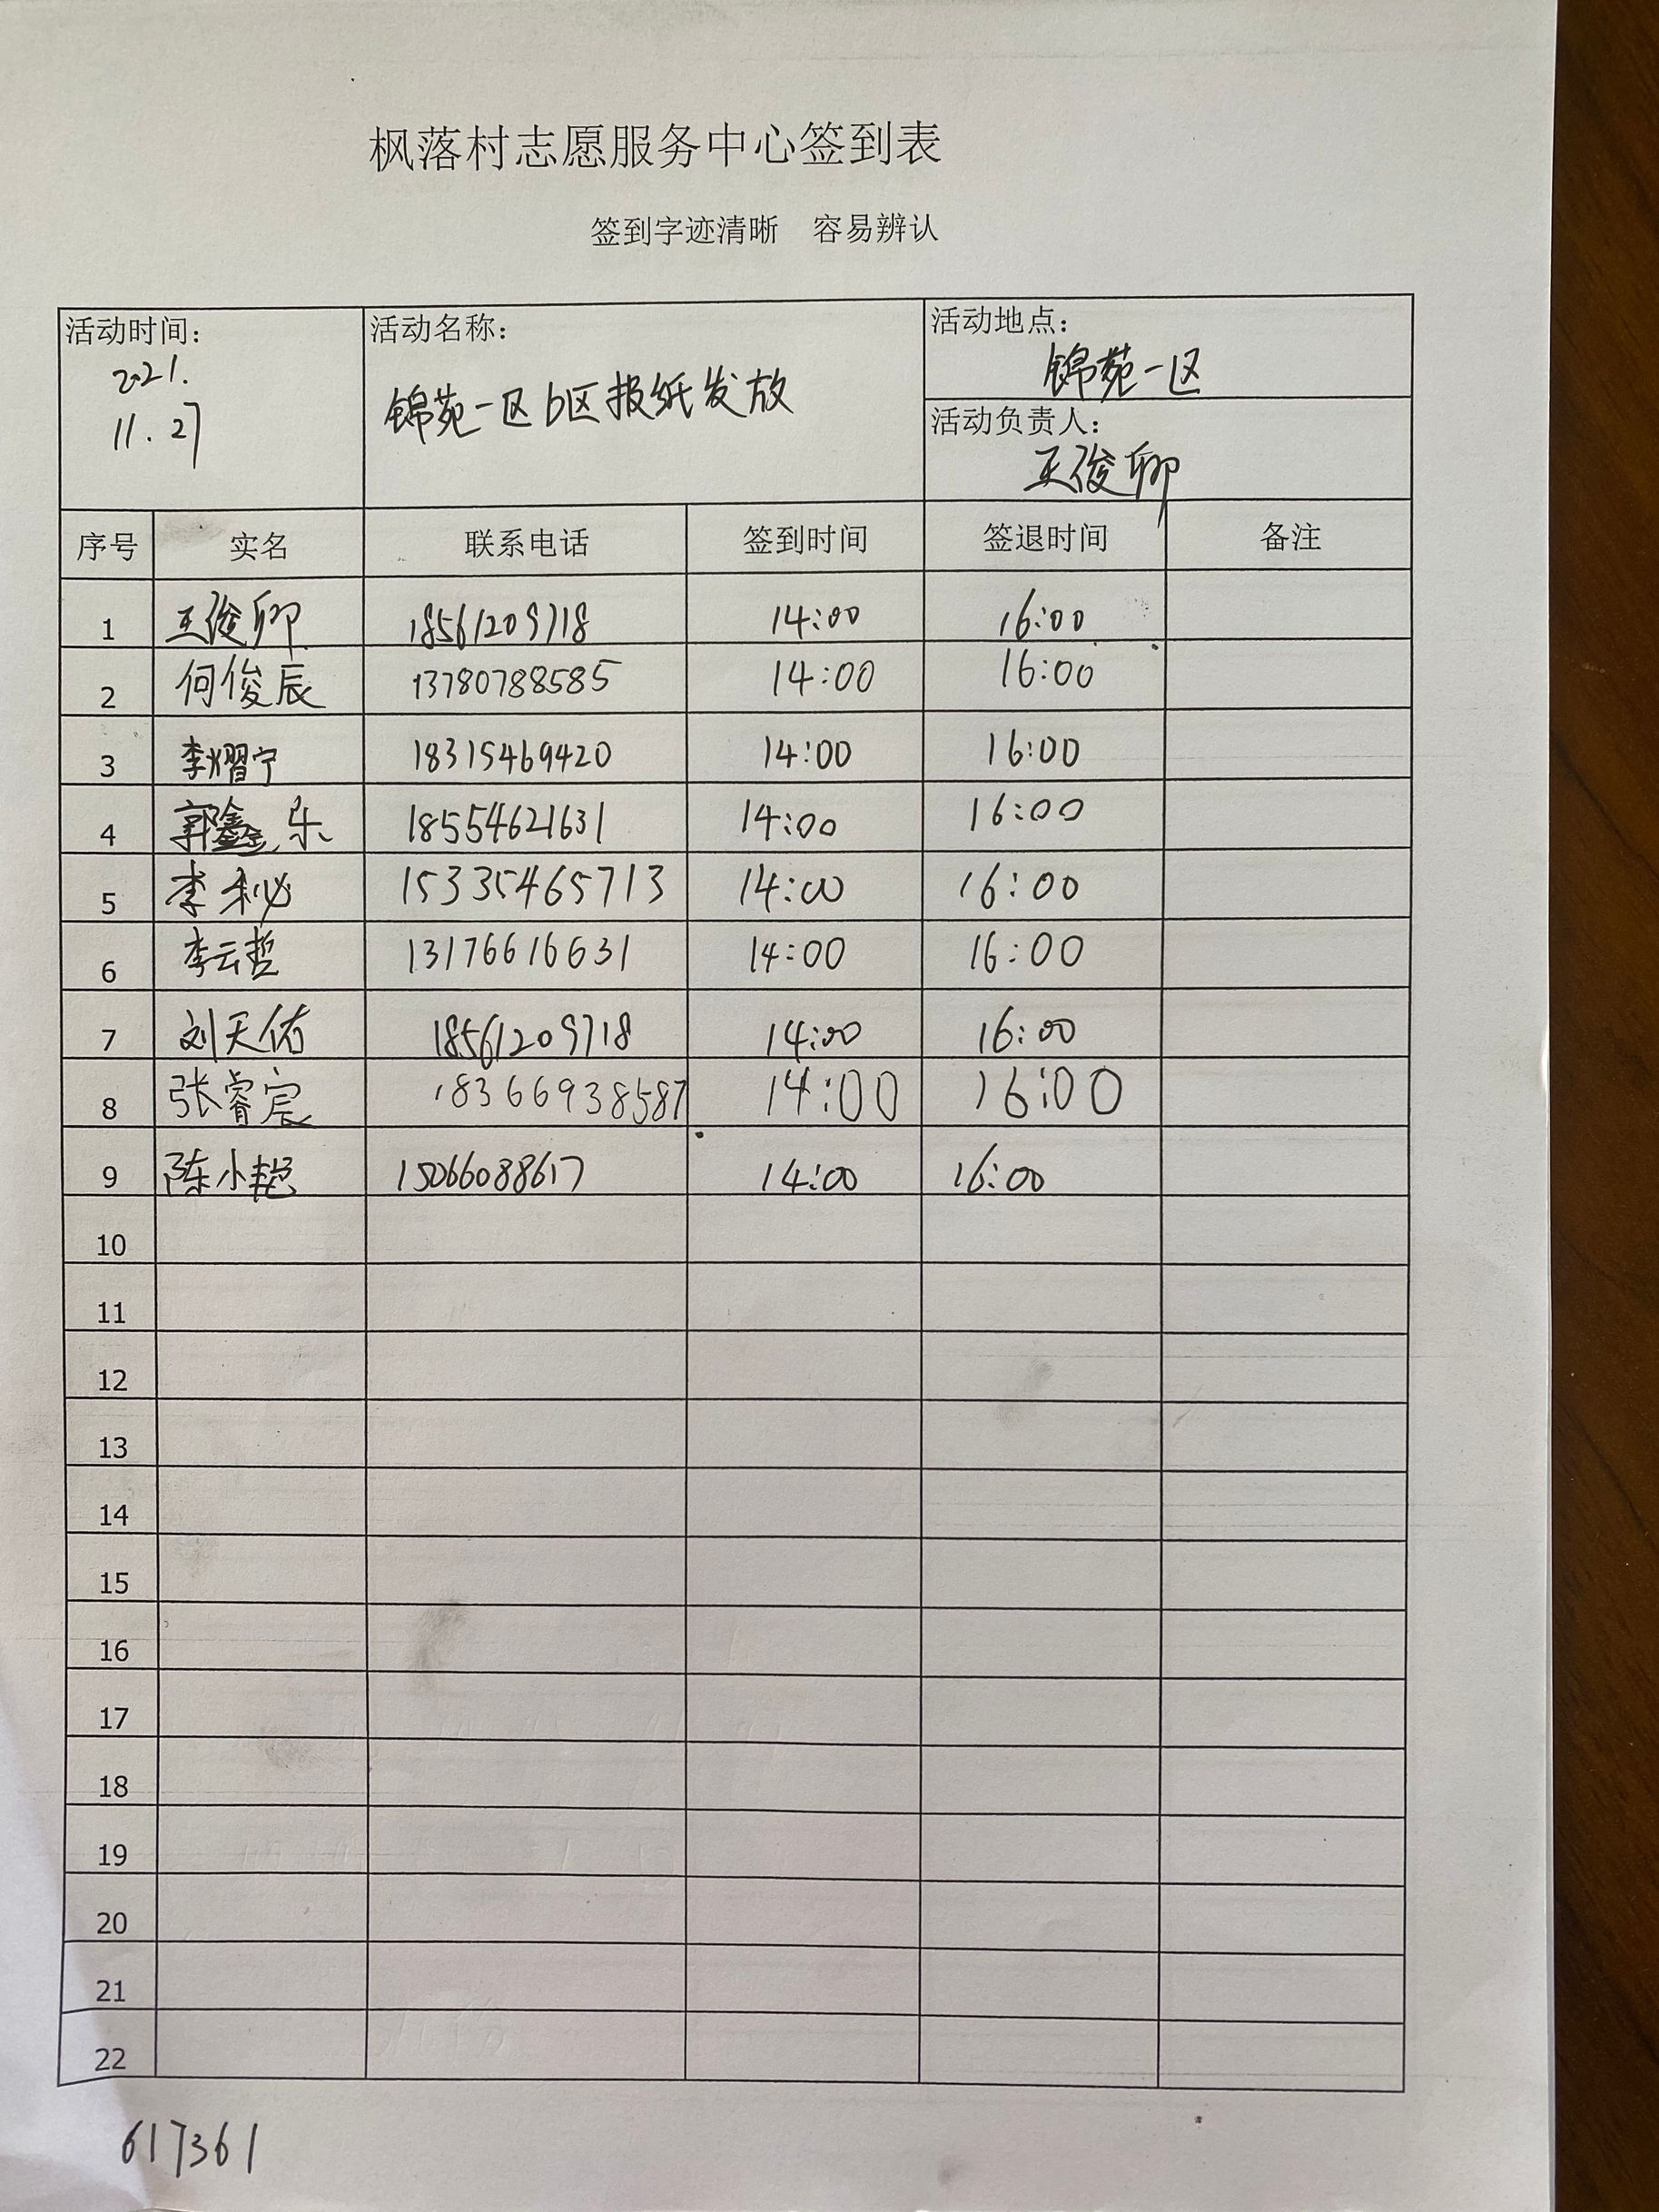 枫落村志愿服务中心签到表
签到字迹清晰 容易辨认
活动时间: 活动名称: 活动地点:
2021. 锦苑一区
11.27 锦苑一区b区报纸发放
活动负责人:
王俊卿
序号 实名 联系电话 签到时间 签退时间 备注
1 王俊卿 18561209718 14:00 16:00
2 何俊辰 13780788585 14:00 16:00
3 李耀宁 18315469420 14:00 16:00
4 郭鑫乐 18554621631 14:00 16:00
5 李秘 15335465713 14:00 16:00
6 李云哲 13176616631 14:00 16:00
7 刘天佑 18561209718 14:00 16:00
8 张睿宸 18366938587 14:00 16:00
9 陈小艳 15066088617 14:00 16:00
10
11
12
13
14
15
16
17
18
19
20
21
22
617361